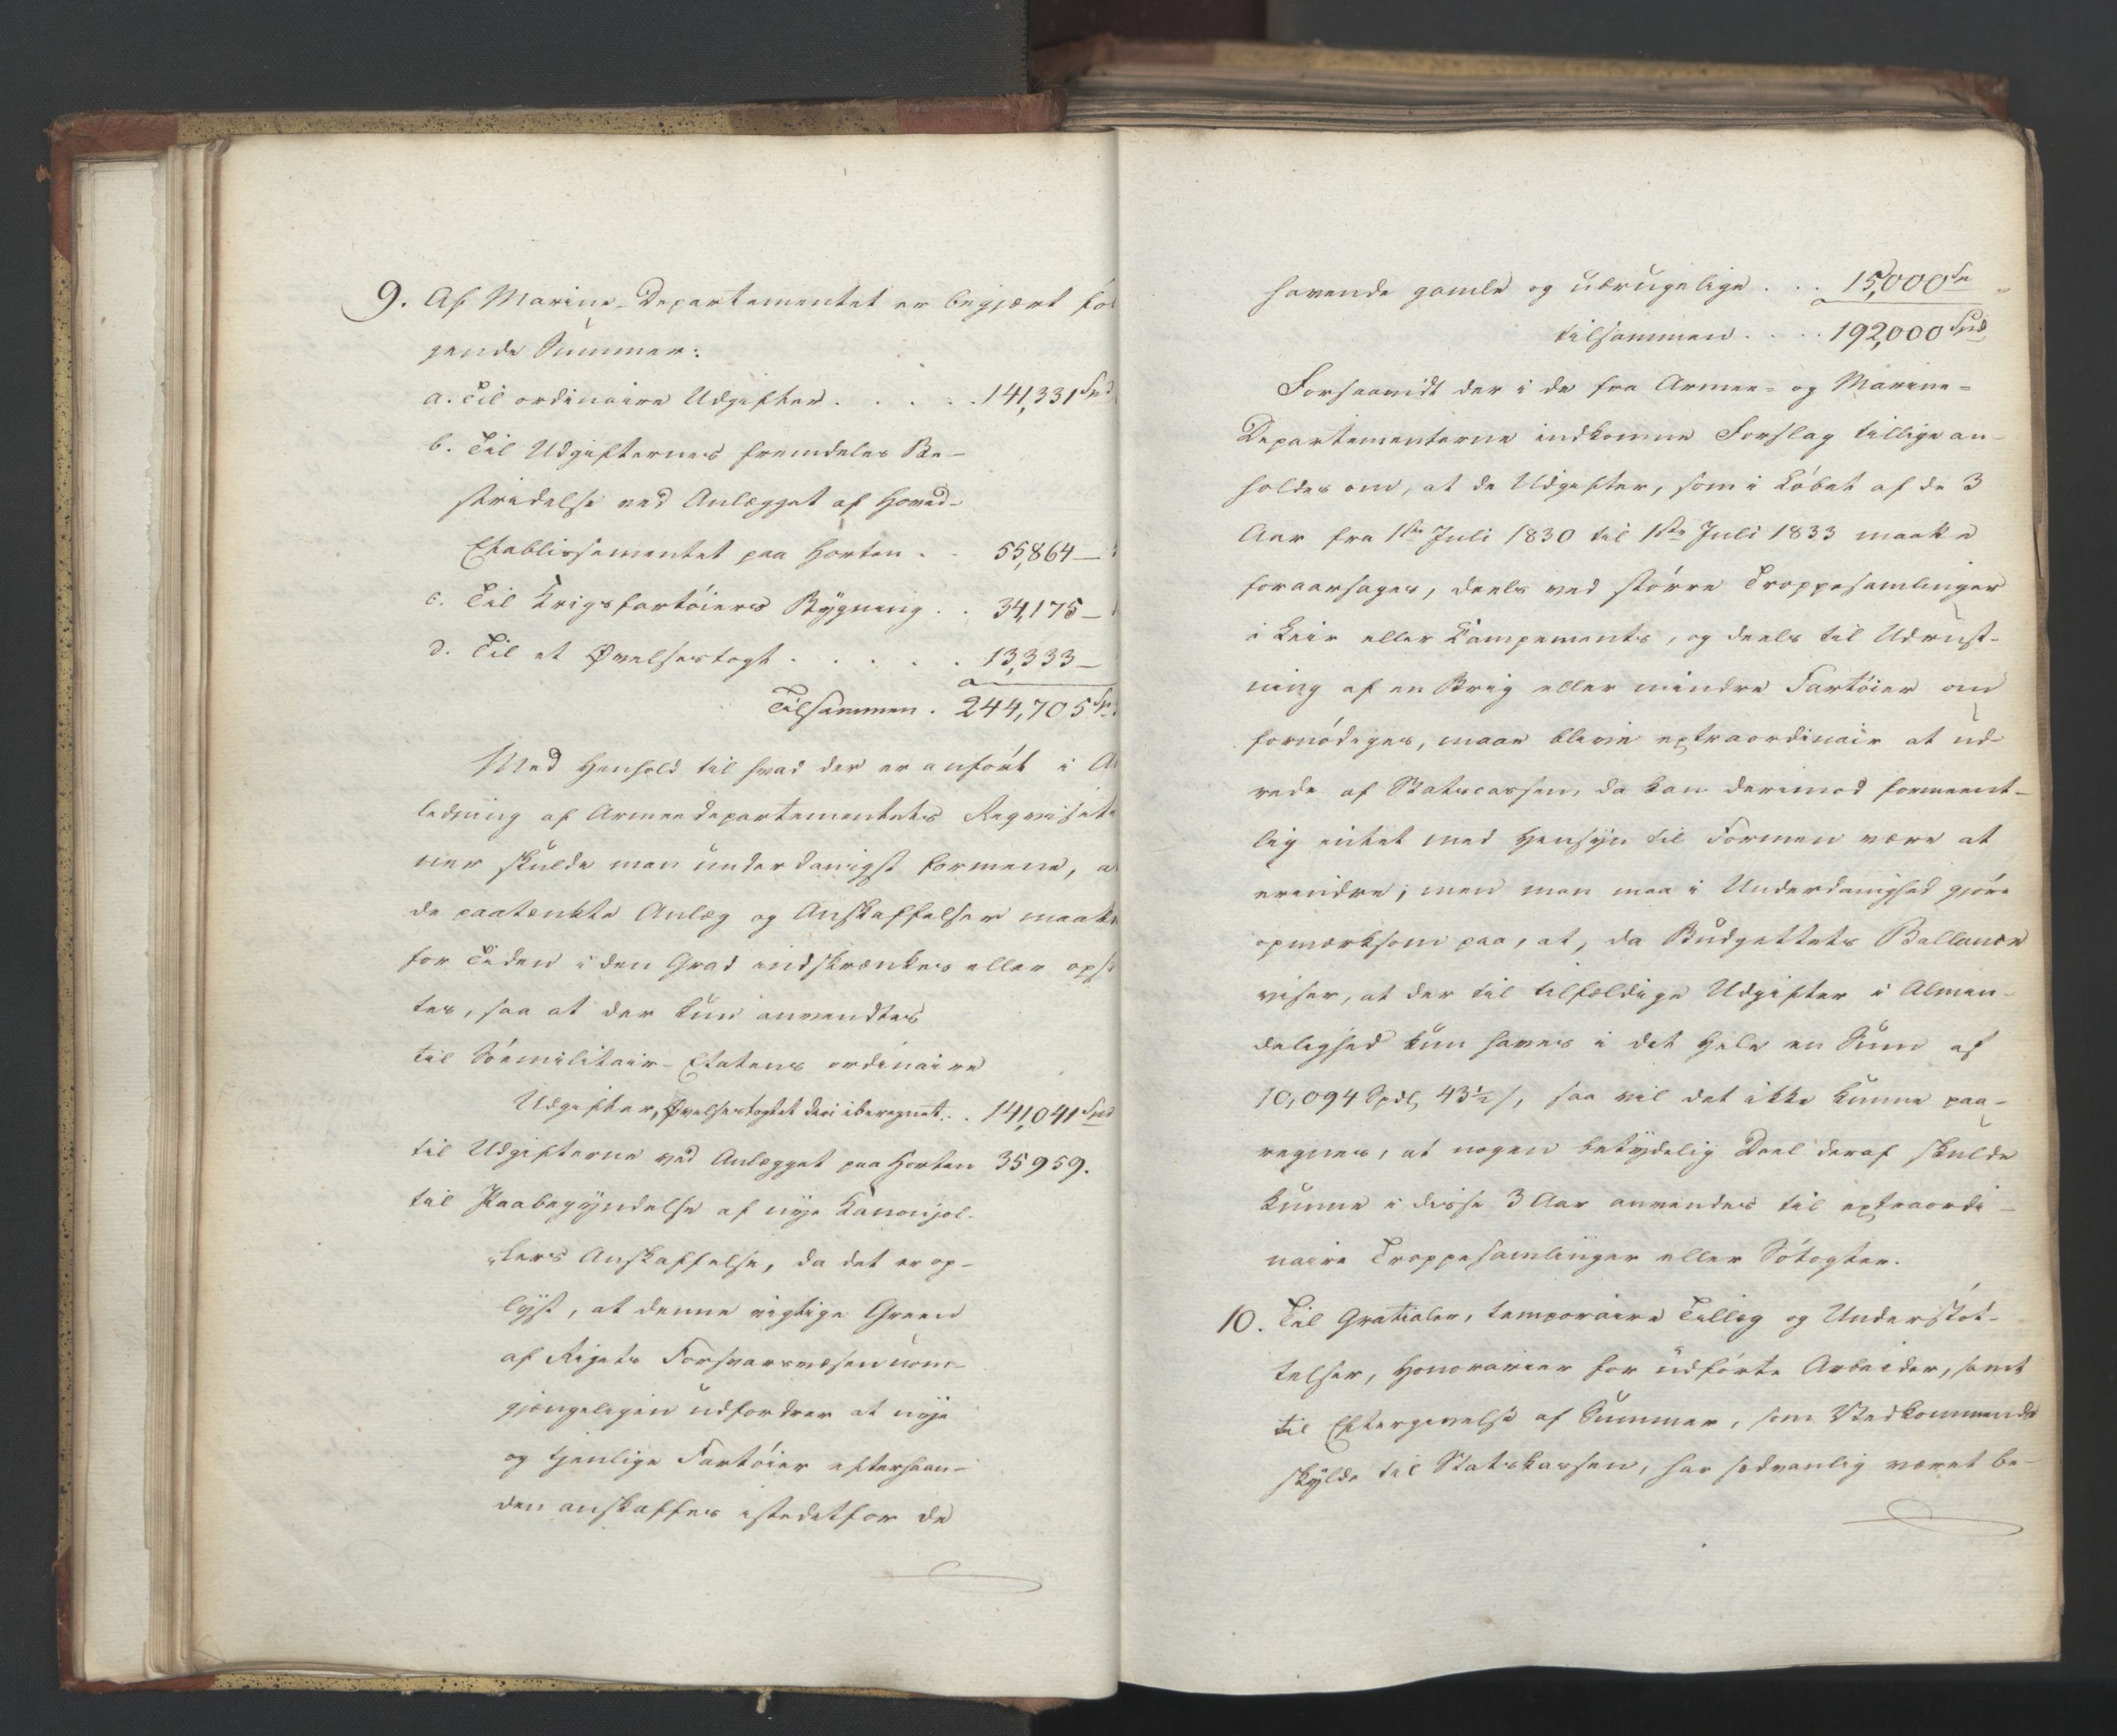 9. Af Marine-Departementet er begjært føl
gende Summer:
a. Til ordinaire Udgifter . . . . . 141,331 Spd
b. Til Udgifternes fremdeles Be-
stridelse ved Anlægget af Hoved-
Etablissementet paa Horten . . 55,864 —
c. Til Krigsfartöiers Bygning . . 34,175 —
d. Til et Øvelsestogt . . . . . 13,333 —
Tilsammen . 244,705 Sp
Med Henhold til hvad der er anfört i A
ledning af Armeedepartementets Reqvisiti
oner skulde man underdanigst formene, a
de paatænkte Anlæg og Anskaffelser maatte
for Tiden i den Grad indskrænkes eller opsæ
tes, saa at der kun anvendtes
til Sömilitair-Etatens ordinaire
Udgifter, Øvelsestogtet deri iberegnet . . 141,041 Spd
til Udgifterne ved Anlægget paa Horten 35959.
til Paabegyndelse af nye Kanonjol-
lers Anskaffelse, da det er op-
lyst, at denne vigtige Green
af Rigets Forsvarsvæsen uom-
gjængeligen udfordrer at nye
og tjenlige Fartöier efterhaan-
den anskaffes istedetfor de
havende gamle og ubrugelige . . . 15,000 Sp
tilsammen . . . . 192,000 Spd
Forsaavidt der i de fra Armee- og Marine-
Departementerne indkomne Forslag tillige an-
holdes om, at de Udgifter, som i Löbet af de 3
Aar fra 1ste Juli 1830 til 1ste Juli 1833 maatte
foraarsages, deels ved större Troppesamlinger
i Leir eller Kampements, og deels til Udrust-
ning af en Brig eller mindre Fartöier om
fornödiges, maae blive extraordinair at ud-
rede af Statscassen, da kan derimod formeent-
lig intet med Hensyn til Formen være at
erindre; men man maa i Underdanighed gjöre
opmærksom paa, at, da Budgettets Ballance
viser, at der til tilfældige Udgifter i Almin-
delighed kun haves i det Hele en Sum af
10,094 Spdl, 43½ /, saa vil det ikke kunne paa-
regnes, at nogen betydelig Deel deraf skulde
kunne i disse 3 Aar anvendes til extraordi-
naire Troppesamlinger eller Sötogter.
10. Til Gratialer, temporaire Tillæg og Understöt-
telser, Honorarier for udförte Arbeider, samt
til Eftergivelse af Summer, som Vedkommende
skylde til Statskassen, har sædvanlig været be-